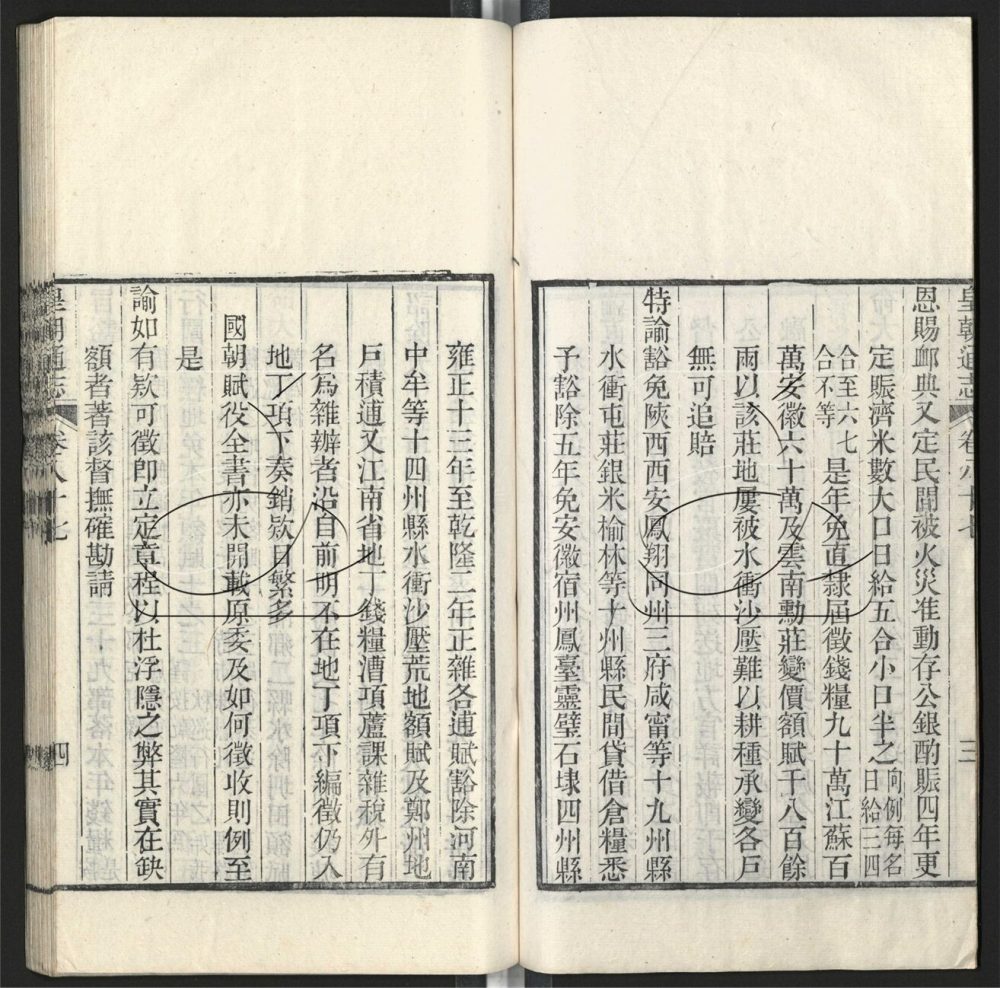 恩賜䘏典又定民閒被火災准動存公銀酌賑四年更
定賑濟米數大口日給五合小口半之向例每名日給三四
合至六七合不等是年免直隸屆徵錢糧九十萬江蘇百
萬安徽六十萬及雲南勳莊變價額賦千八百餘
兩以該莊地屢被水衝沙壓難以耕種承變各戶
無可追賠
特諭豁免陝西西安鳳翔同州三府咸甯等十九州縣
水衝屯莊銀米榆林等十州縣民間貸借倉糧悉
予豁除五年免安徽宿州鳳臺靈璧石埭四州縣
皇朝通志
卷八十七
三
雍正十三年至乾隆二年正雜各逋賦豁除河南
中牟等十四州縣水衝沙壓荒地額賦及鄭州地
戶積逋又江南省地丁錢糧漕項蘆課雜稅外有
名為雜辦者沿自前明不在地丁項下編徵仍入
地丁項下奏銷欵目繁多
國朝賦役全書亦未開載原委及如何徵收則例至
是
諭如有欵可徵即立定章程以杜浮隱之弊其實在缺
額者著該督撫確勘請
皇朝通志
卷八十七
四